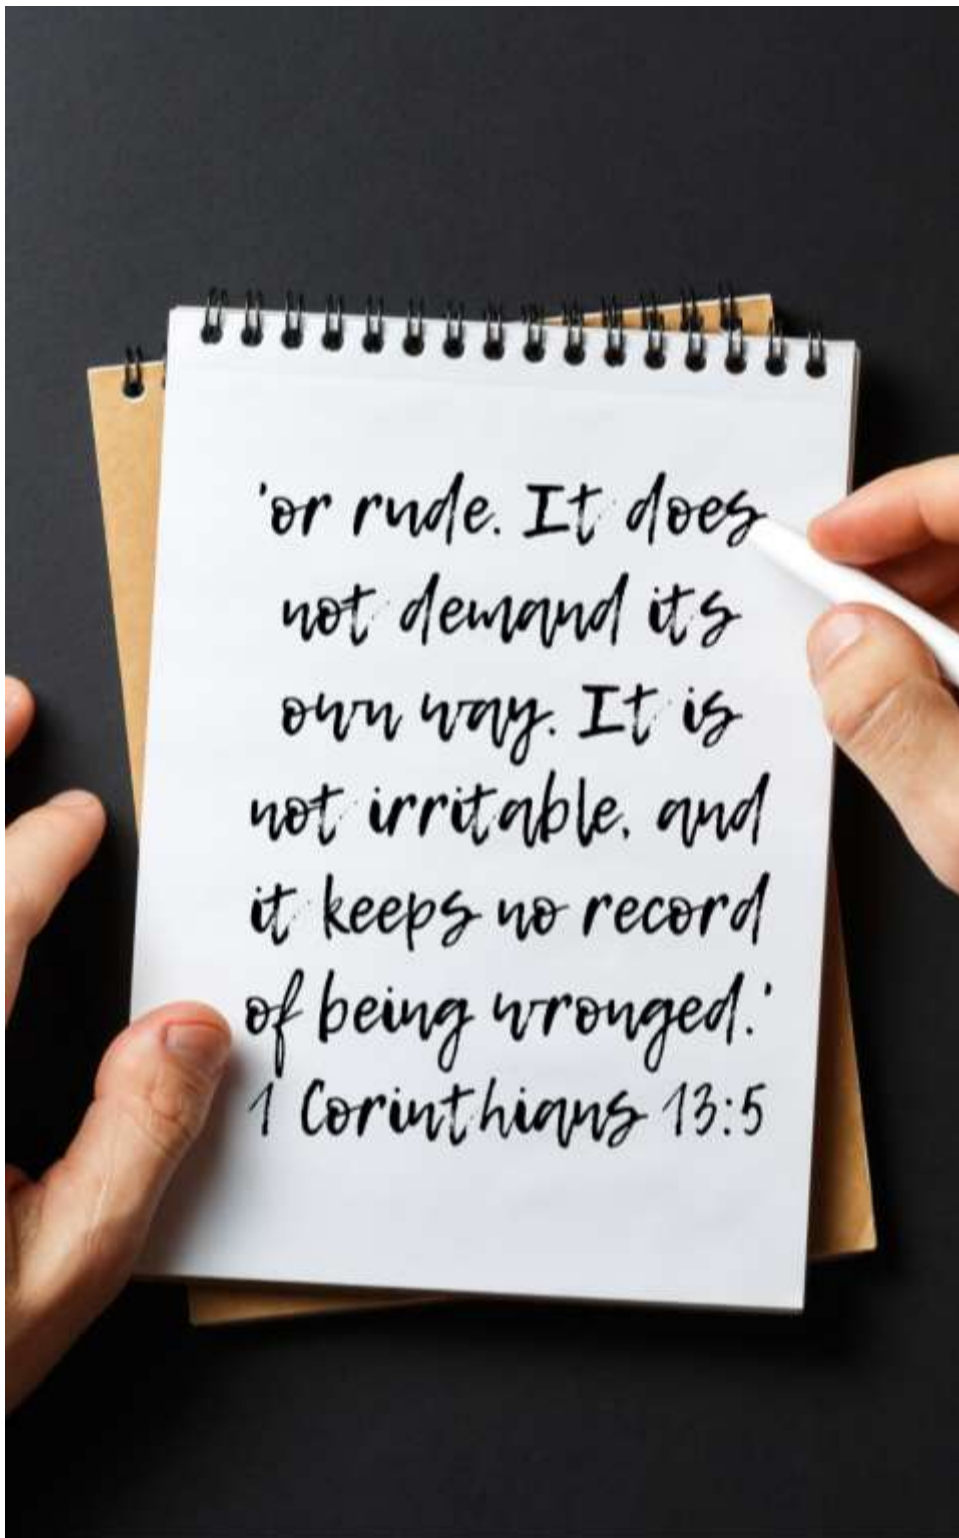 'or rude. It does
not demand its
own way. It is
not irritable, and
it keeps no record
of being wronged.'
1 Corinthians 13:5